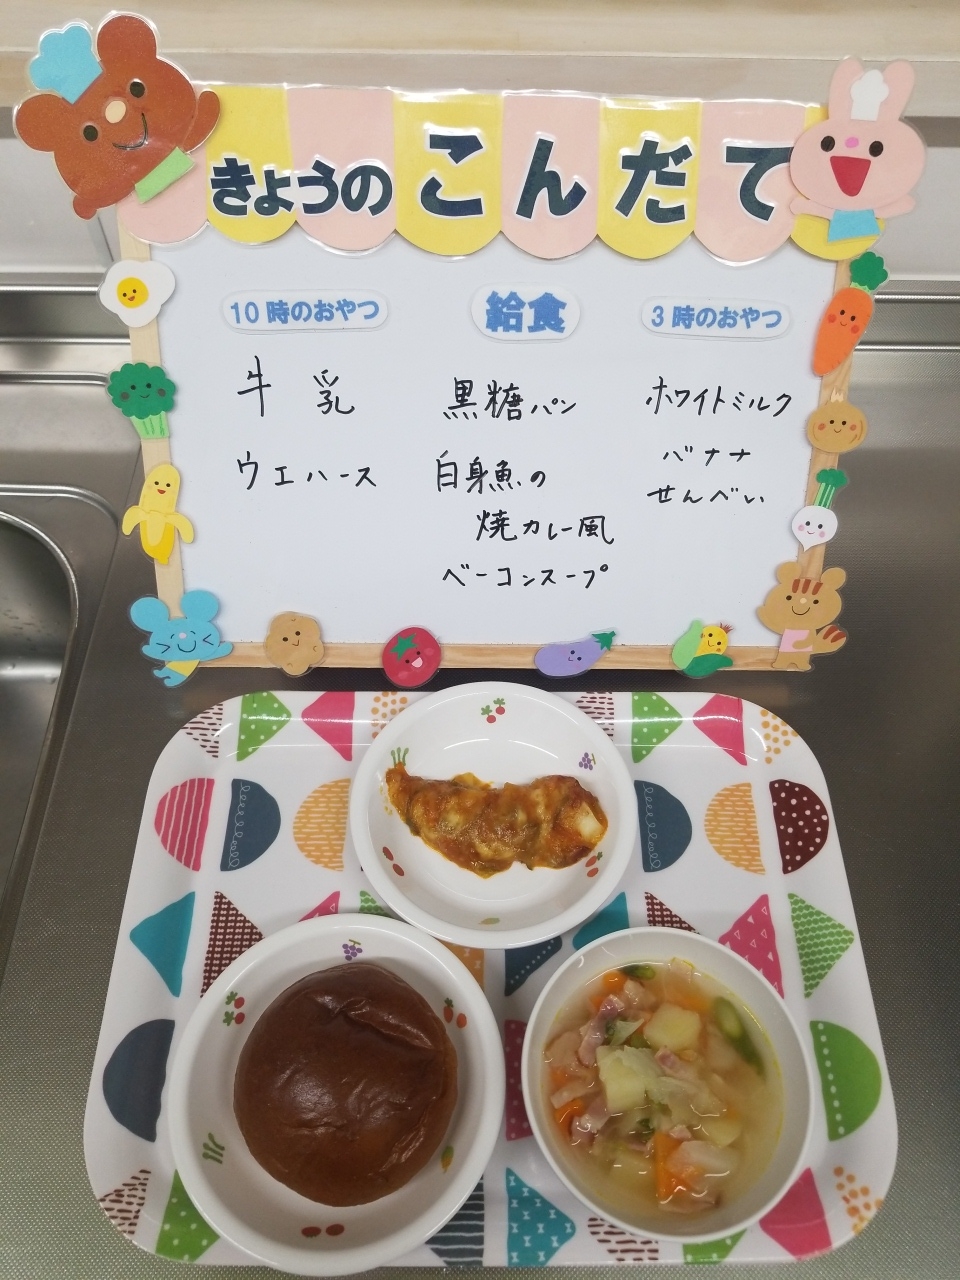 きょうの こんだて
10時のおやつ
牛乳
ウエハース
給食
黒糖パン
白身魚の
焼カレー風
ベーコンスープ
3時のおやつ
ホワイトミルク
バナナ
せんべい